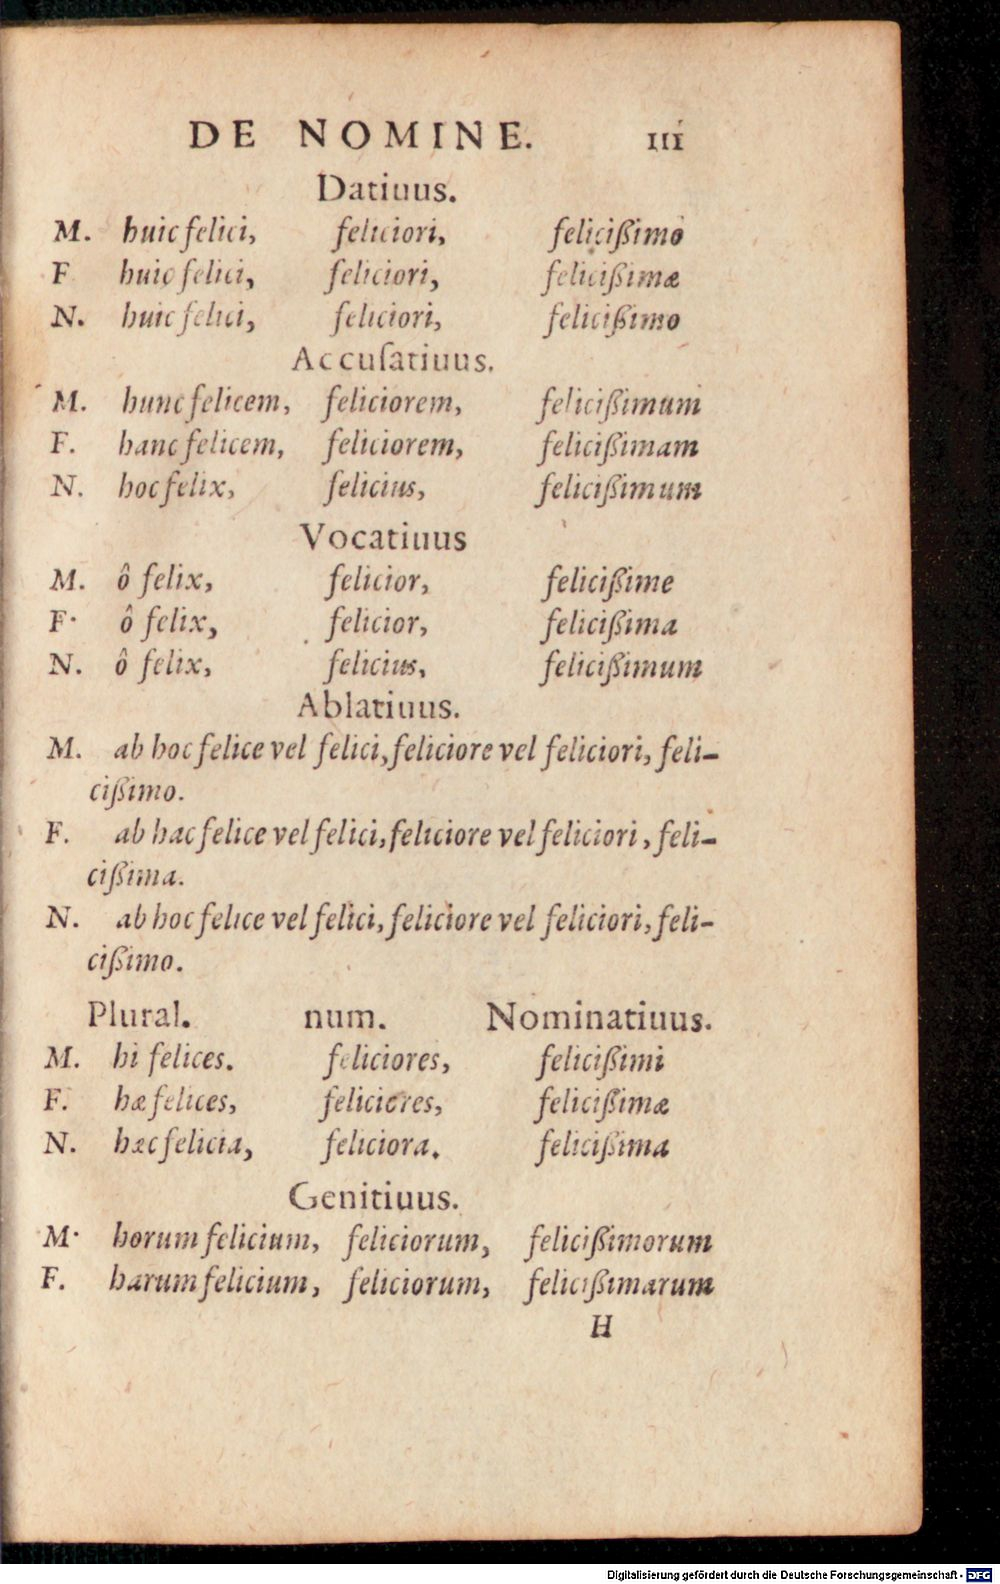 DE NOMINE. 111
Datiuus.
M. huic felici, feliciori, felicißimo
F huic felici, feliciori, felicißimæ
N. huic felici, feliciori, felicißimo
Accuſatiuus.
M. hunc felicem, feliciorem, felicißimum
F. hanc felicem, feliciorem, felicißimam
N. hoc felix, felicius, felicißimum
Vocatiuus
M. ô felix, felicior, felicißime
F. ô felix, felicior, felicißima
N. ô felix, felicius, felicißimum
Ablatiuus.
M. ab hoc felice vel felici, feliciore vel feliciori, feli-
cißimo.
F. ab hac felice vel felici, feliciore vel feliciori, feli-
cißima.
N. ab hoc felice vel felici, feliciore vel feliciori, feli-
cißimo.
Plural. num. Nominatiuus.
M. hi felices. feliciores, felicißimi
F. hæ felices, feliciores, felicißimæ
N. hæc felicia, feliciora. felicißima
Genitiuus.
M. horum felicium, feliciorum, felicißimorum
F. harum felicium, feliciorum, felicißimarum
H
Digitalisierung gefördert durch die Deutsche Forschungsgemeinschaft - DFG